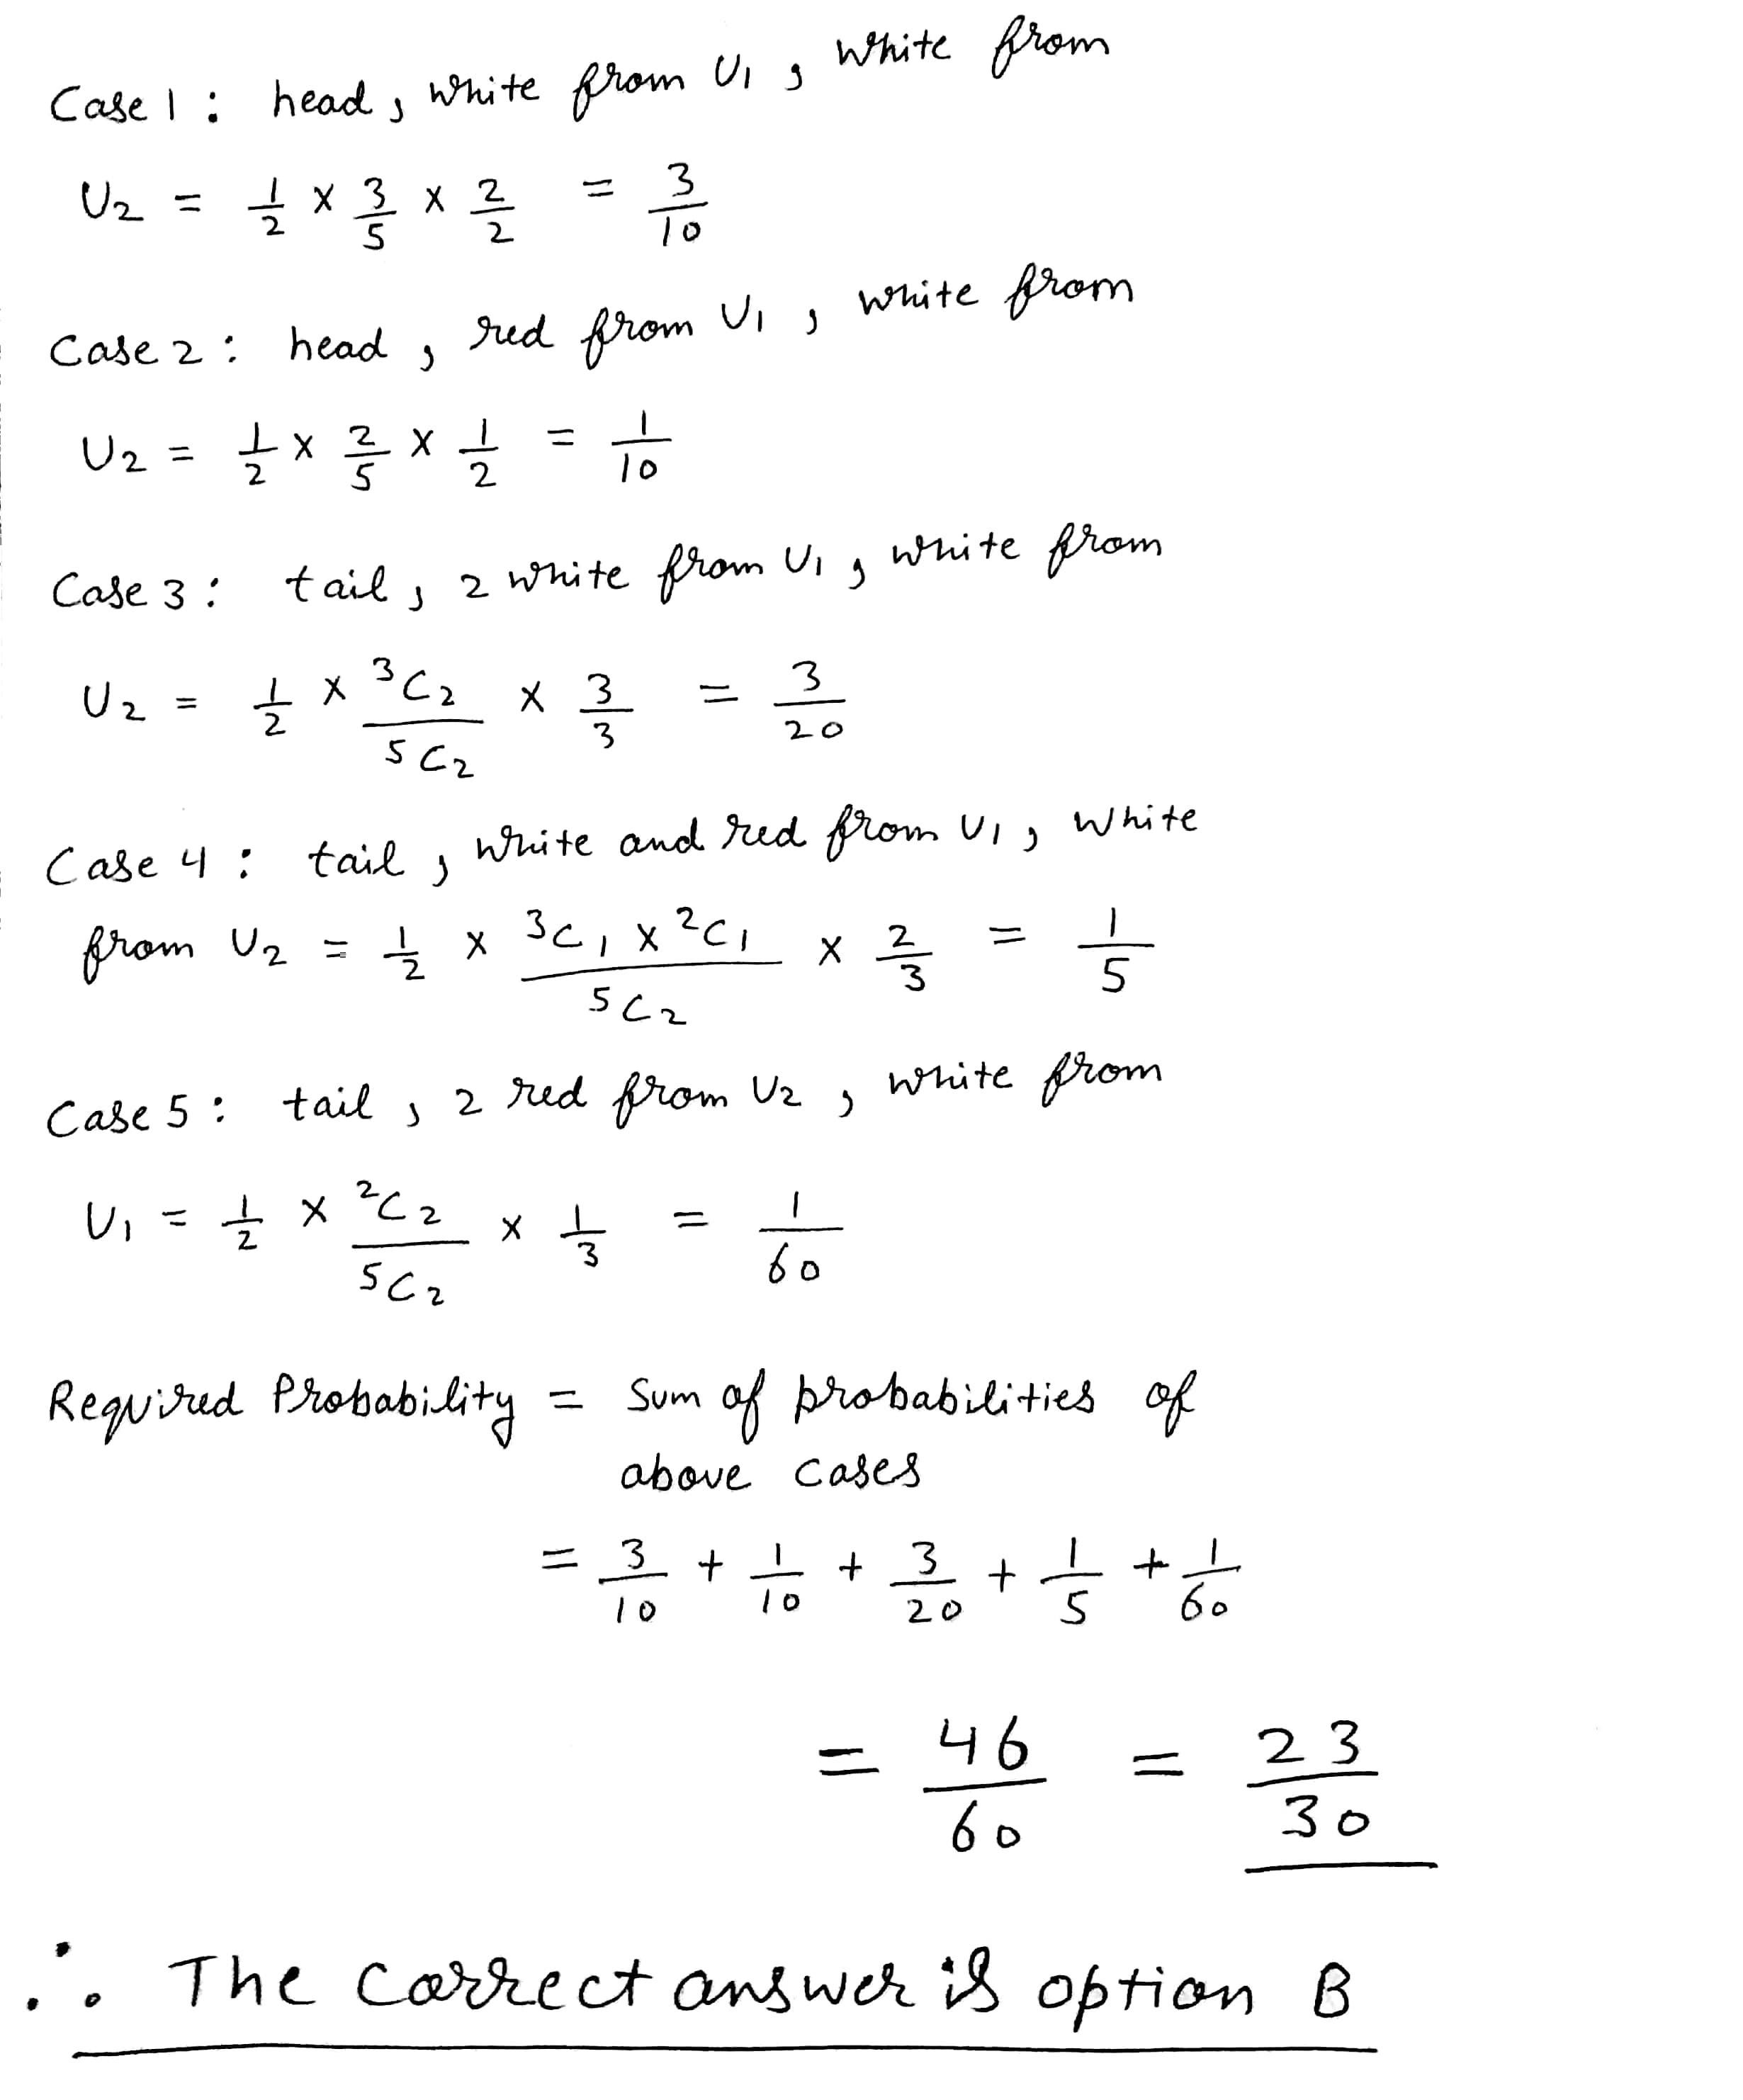 Case 1 : head, white from U1, white from
U2 = 1/2 × 3/5 × 2/2 = 3/10
Case 2 : head, red from U1, white from
U2 = 1/2 × 2/5 × 1/2 = 1/10
Case 3 : tail, 2 white from U1, white from
U2 = 1/2 × ³C₂/5C₂ × 3/3 = 3/20
Case 4 : tail, white and red from U1, white
from U2 = 1/2 × 3C₁ × ²C₁/5C₂ × 2/3 = 1/5
Case 5 : tail, 2 red from U2, white from
U1 = 1/2 × ²C₂/5C₂ × 1/3 = 1/60
Required Probability = Sum of probabilities of
above cases
= 3/10 + 1/10 + 3/20 + 1/5 + 1/60
= 46/60 = 23/30
∴ The correct answer is option B